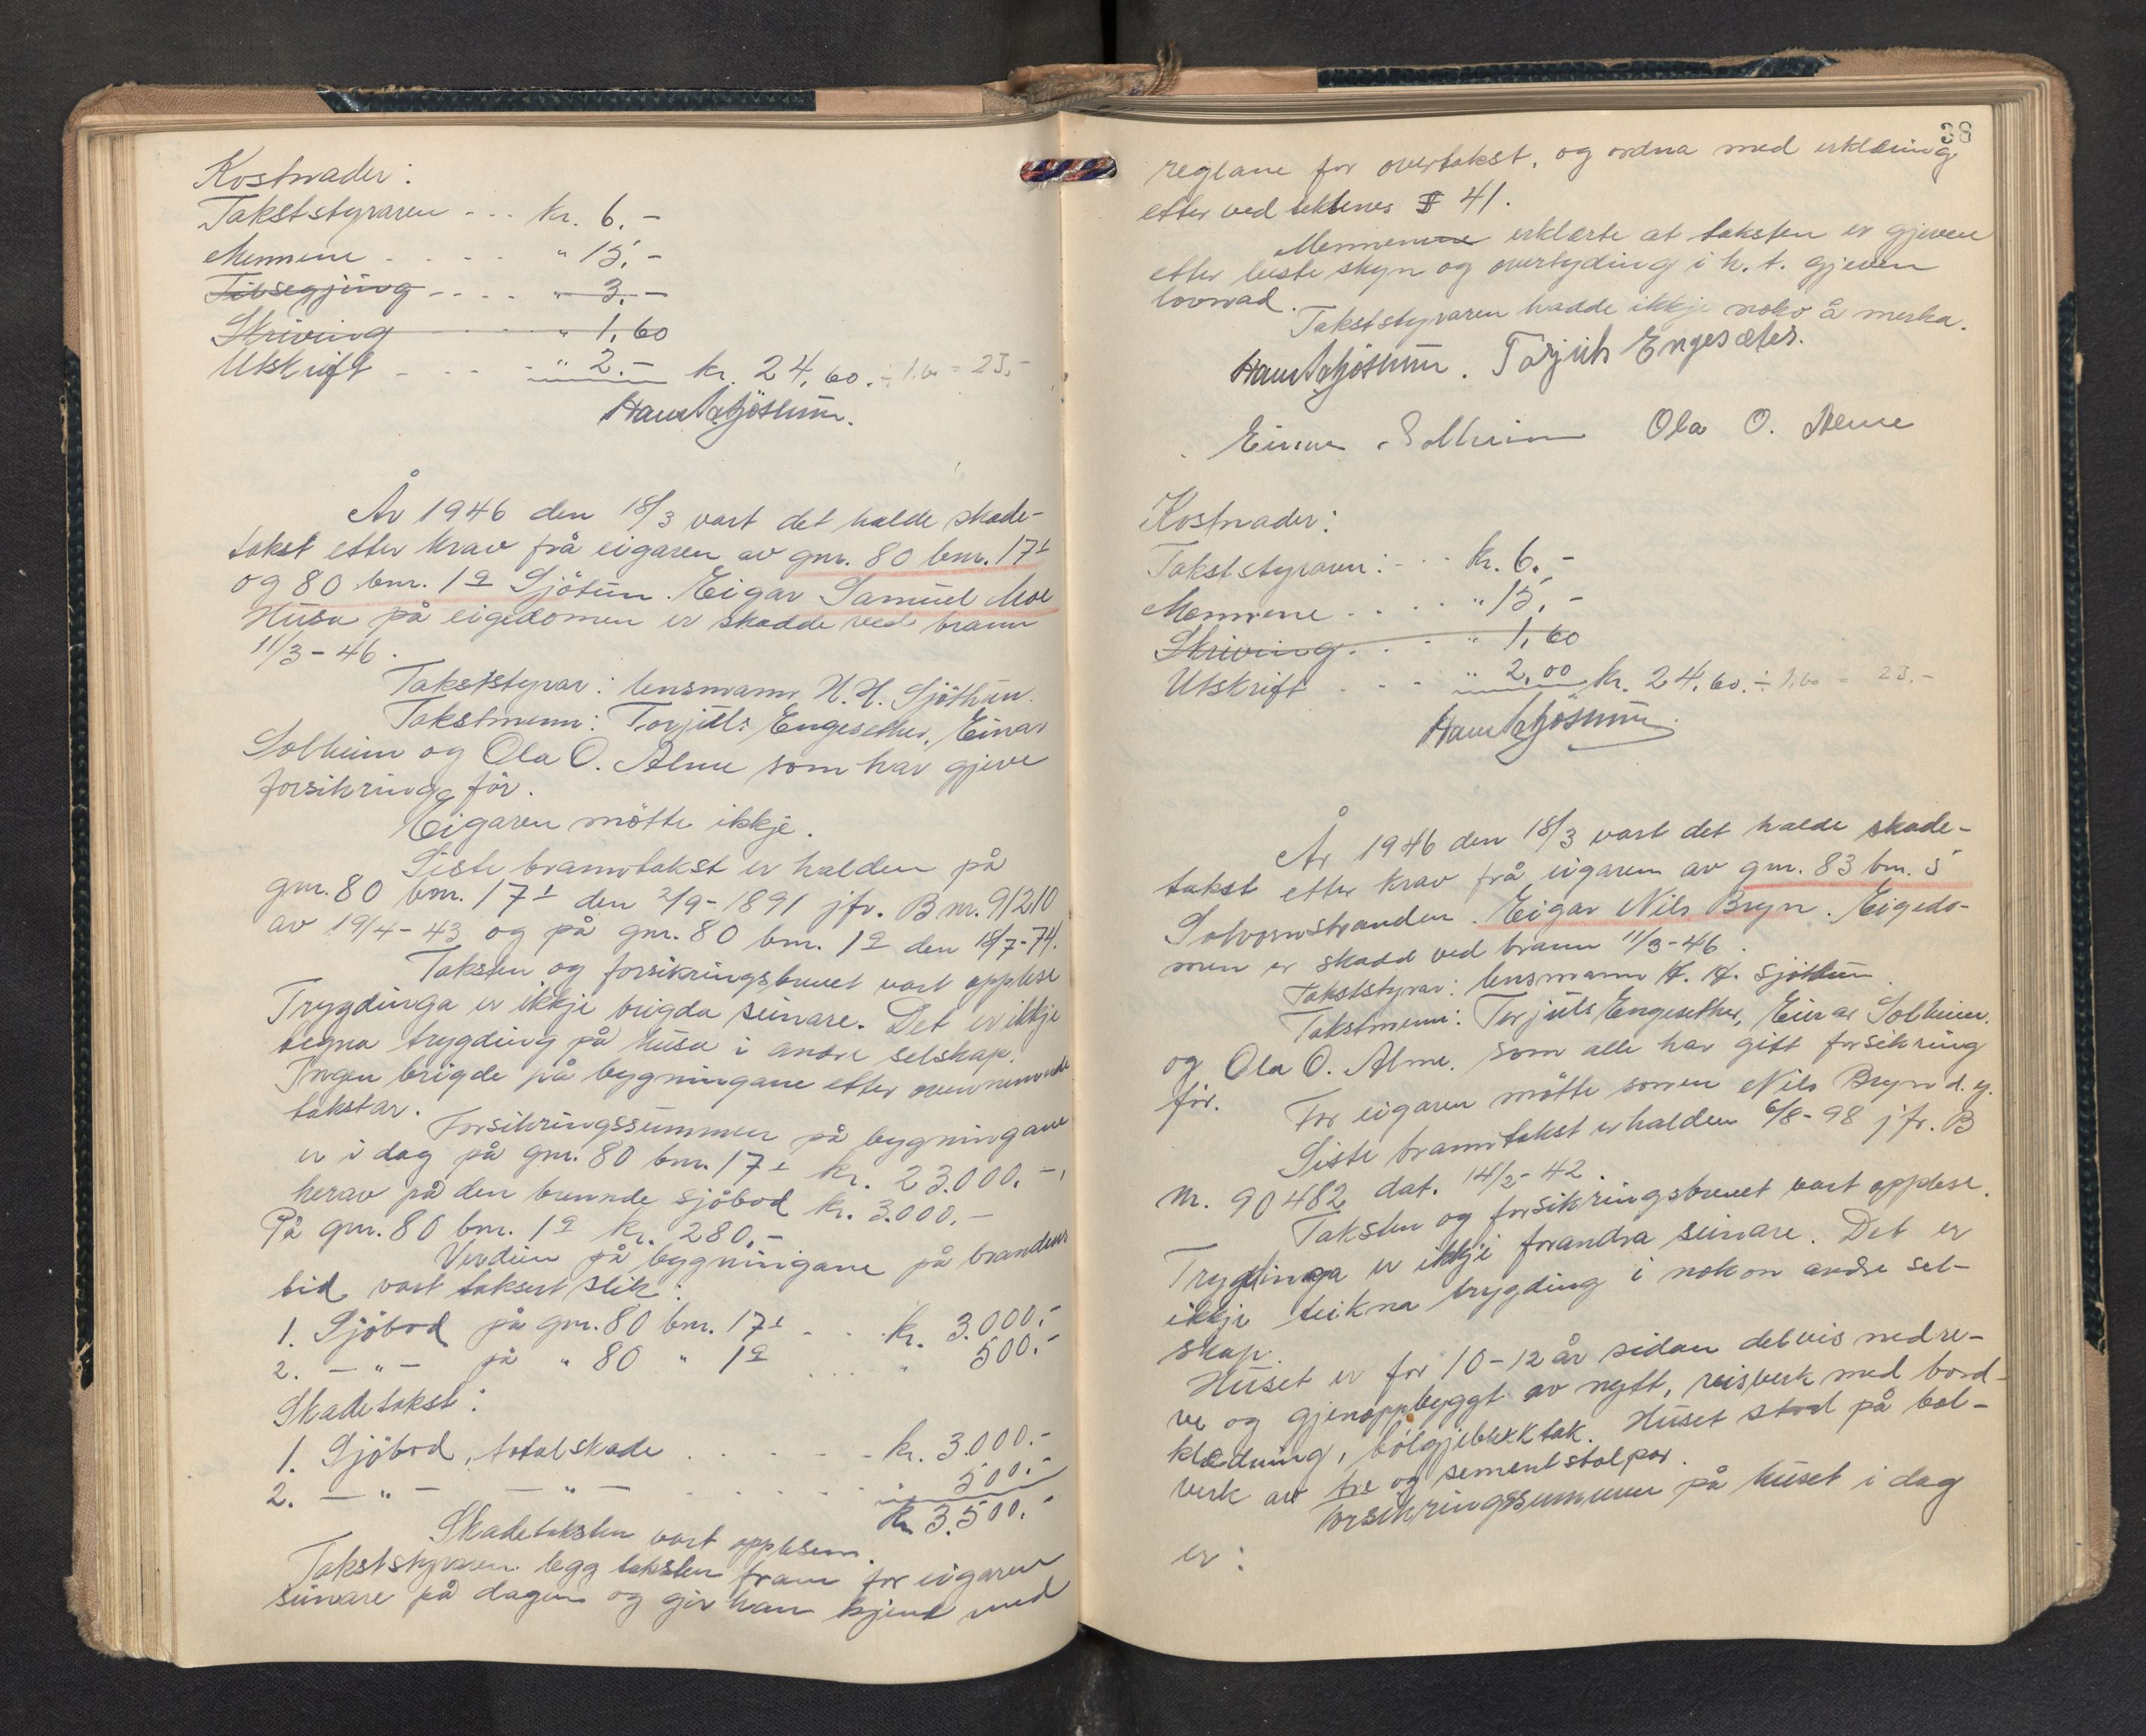 Kostnader:
Takststyraren - - - kr. 6.-
Mennene - - - - - " 15.-
Tilsegjing - - - - " 3.-
Skriving " 1,60
Utskrift - - - - " 2.- kr. 24,60. ÷ 1,60 = 23,-
År 1946 den 18/3 vart det halde skade-
takst etter krav frå eigaren av gnr. 80 bnr. 17
og 80 bnr. 1a Sjötun. Eigar Samuel Moe
Husa på eigedomen er skadde ved brann
11/3-46.
Takststyrar: lensmann H. H. Sjöthun.
Takstmenn: Torjuls Engesether, Einar
Solheim og Ola O. Alme som har gjeve
forsikring för.
Eigaren mötte ikkje.
Siste branntakst er halden på
gnr. 80 bnr. 17 den 2/9-1891 jfr. B nr. 91210
av 19/4-43 og på gnr. 80 bnr. 1a den 18/7-74.
Taksten og forsikringsbrevet vart opplese
Trygdinga er ikkje brigda seinare. Det er ikkje
tegna trygding på husa i andre selskap.
Ingen brigde på bygningane etter ovennemnde
takstar.
Forsikringssummen på bygningane
er i dag på gnr. 80 bnr. 17 kr. 23.000.-,
herav på den brennde sjöbod kr. 3.000.-
På gnr. 80 bnr. 1a kr. 280,-
Verdien på bygningane på brandens
tid vart taksert slik:
1. Sjöbod på gnr. 80 bnr. 17 - . . kr. 3.000.-
2. - " - på " 80 " 1a . . . . " 500.-
Skadetakst:
1. Sjöbod, totalskade . . . . - kr. 3.000.-
2. - " - - " - . . . . . . " 500.-
kr 3.500.-
Skadetaksten vart opplesen.
Takststyraren legg taksten fram for eigaren
seinare på dagen og gjer han kjent med
38
reglane for overtakst, og ordna med erklæring
etter vedtektenes § 41.
Mennene erklærte at taksten er gjeven
etter beste skyn og overtyding i h. t. gjeven
lovnad.
Takststyraren hadde ikkje noko å merka.
Hans H Sjöthun. Torjuls Engesæter.
Einar Solheim Ola O. Alme
Kostnader:
Takststyraren: - - kr. 6.-
Mennene . . . . " 15,-
Skriving . . - " 1,60
Utskrift - - - " 2,00 kr. 24,60. ÷ 1,60 = 23.-
År 1946 den 18/3 vart det halde skade-
takst etter krav frå eigaren av gnr. 83 bnr. 5
Solvornstranden. Eigar Nils Bryn. Eigedo-
men er skadd ved brann 11/3-46.
Takststyrar: lensmann H. H. Sjöthun
Takstmenn: Torjuls Engesether, Einar Solheim.
og Ola O. Alme. som alle har gitt forsikring
för.
For eigaren mötte sonen Nils Bryn d. y.
Siste branntakst er halden 6/8-98 jfr. B
nr. 90482 dat. 14/5-42.
Taksten og forsikringsbrevet vart opplese.
Trygdinga er ikkje forandra seinare. Det er
ikkje teikna trygding i nokon andre sel-
skap.
Huset er for 10-12 år sidan delvis nedre-
ve og gjenoppbyggt av nytt, reisverk med bord-
klædning, bölgjeblekktak. Huset stod på bol-
verk av tre og sementstolpar.
Forsikringssummen på huset i dag
er: